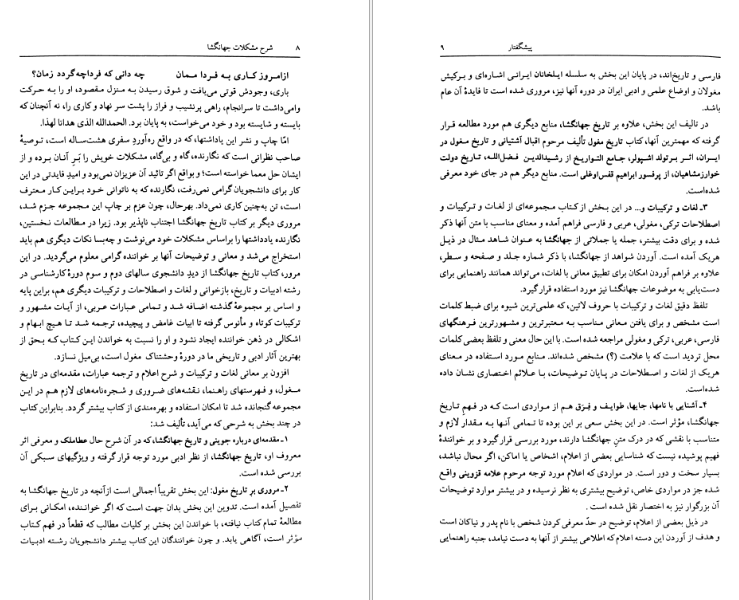 ۸ شرح مشکلات جهانگشا
ازامـروز کـاری بـه فـردا مـمان چه دانی که فرداچه گردد زمان؟
باری، وجودش قوتی می‌یافت و شوق رسیدن بـه منزل مقصود، او را بـه حرکت
وامی‌داشت تا سرانجام، راهی پرنشیب و فراز را پشت سر نهاد و کاری را، نه آنچنان که
بایسته و شایسته بود و خود می‌خواست، به پایان برد. الحمدالله الذی هدانا لهذا.
امّا چاپ و نشر این یاداشتها، که در واقع ره‌آوردِ سفری هشت‌ساله است، تـوصیهٔ
صاحب نظرانی است که نگارنده، گاه و بی‌گاه، مشکلات خویش را بَرِ آنان برده و از
ایشان حل معما خواسته است؛ و بواقع اگر تائید آن عزیزان نمی‌بود و امیدِ فایدتی در این
کار برای دانشجویان گرامی نمی‌رفت، نگارنده که به ناتوانی خـود بـراین کـار معترف
است، تن به‌چنین کاری نمی‌داد. بهرحال، چون عزم بر چاپ این مجموعه جـزم شـد،
مروری دیگر بر کتاب تاریخ جهانگشا اجتناب ناپذیر بود. زیرا در مطالعات نخستین،
نگارنده یادداشتها را براساس مشکلات خود می‌نوشت و چه‌بـا نکات دیگری هم باید
استخراج می‌شد و معانی و توضیحات آنها بر خواننده گرامی معلوم می‌گردید. در این
مرور، کتاب تاریخ جهانگشا از دیدِ دانشجوی سالهای دوم و سوم دورهٔ کارشناسی در
رشته ادبیات و تاریخ، بازخوانی و لغات و اصطلاحات و ترکیبات دیگری هم، براین پایه
و اساس بر مجموعهٔ گذشته اضافه شـد و تـمامی عبارات عربی، از آیـات مشـهور و
ترکیبات کوتاه و مأنوس گرفته تا ابیات غامض و پیچیده، ترجمه شـد تـا هیـچ ابـهام و
اشکالی در ذهن خواننده ایجاد نشود و او را نسبت به خواندن ایـن کـتاب کـه بـحق از
بهترین آثار ادبی و تاریخی ما در دورهٔ وحشتناک مغول است، بی‌میل نسازد.
افزون بر معانی لغات و ترکیبات و شرح اعلام و ترجمه عبارات، مقدمه‌ای در تاریخ
مـغول، و فهرستهای راهـنما، نـقشه‌های ضـروری و شـجره‌نامه‌های لازم هـم در ایـن
مجموعه گنجانده شد تا امکان استفاده و بهره‌مندی از کتاب بیشتر گردد. بنابراین کتاب
در چند بخش به شرحی که می‌آید، تألیف شد:
۱ـ مقدمه‌ای درباره جوینی و تاریخ جهانگشا،که در آن شرح حال عطاملک و معرفی اثر
معروف او، تاریخ جهانگشا، از نظر ادبی مورد توجه قرار گرفته و ویژگیهای سبکی آن
بررسی شده است.
۲ـ مروری بر تاریخ مغول: این بخش تقریباً اجمالی است ازآنچه در تاریخ جهانگشا به
تفصیل آمده است. تدوین این بخش بدان جهت است که اگر خواننده، امکانـی بـرای
مطالعهٔ تمام کتاب نیافته، با خواندن این بخش بر کلیات مطالب که قطعاً در فهم کـتاب
مؤثر است، آگاهی یابد. و چون خوانندگان این کتاب بیشتر دانشجویان رشـته ادبـیات
پیشگفتار ۹
فارسی و تاریخ‌اند، در پایان این بخش به سلسله ایـلخانان ایـرانی اشـاره‌ای و بـرکیش
مغولان و اوضاع علمی و ادبی ایران در دوره آنها نیز، مروری شده است تا فایدهٔ آن عام
باشد.
در تالیف این بخش، علاوه بر تاریخ جهانگشا، منابع دیگری هم مورد مطالعه قـرار
گرفته که مهمترین آنها، کتاب تاریخ مغول تألیف مرحوم اقبال آشتیانی و تاریخ مـغول در
ایـران، اثـر بـرتولد اشـپولر، جامع التـواریـخ از رشـیدالدیـن فـضل‌الله، تـاریخ دولت
خوارزمشاهیان، از پرفسور ابراهیم قفس‌اوغلی است. منابع دیگر هم در جای خود معرفی
شده‌است.
۳ـ لغات و ترکیبات و... در این بخش از کتاب مجموعه‌ای از لغـات و تـرکیبات و
اصطلاحات ترکی، مغولی، عربی و فارسی فراهم آمده و معنای مناسب با متن آنها ذکر
شده و برای دقت بیشتر، جمله یا جملاتی از جهانگشا به عنوان شاهد مثال در ذیـل
هریک آمده است. آوردن شواهد از جهانگشا، با ذکر شماره جـلد و صـفحه و سـطر،
علاوه بر فراهم آوردن امکان برای تطبیق معانی با لغات، می‌تواند همانند راهنمایی برای
دست‌یابی به موضوعات جهانگشا نیز مورد استفاده قرارگیرد.
تلفظ دقیق لغات و ترکیبات با حروف لاتین، که علمی‌ترین شیوه برای ضبط کلمات
است مشخص و برای یافتن معانی مناسب بـه معتبرترین و مشـهورترین فـرهنگهای
فارسی، عربی، ترکی و مغولی مراجعه شده است. با این حال معنی و تلفظ بعضی کلمات
محل تردید است که با علامت (؟) مشخص شده‌اند. منابع مـورد اسـتفاده در مـعنای
هریک از لغات و اصطلاحات در پایان توضیحات، بـا عـلائم اخـتصاری نشـان داده
شده‌است.
۴ـ آشنایی با نامها، جایها، طوایف و فِرَق هم از مـواردی است کـه در فـهم تـاریخ
جهانگشا، مؤثر است. در این بخش سعی بر این بوده تا تمامی آنها بـه مـقدار لازم و
متناسب با نقشی که در درک متنِ جهانگشا دارند، مورد بررسی قرار گیرد و بر خواننـدهٔ
فهیم پوشیده نیست که شناسایی بعضی از اعلام، اشخاص یا اماکن، اگر محال نباشد،
بسیار سخت و دور است. در مواردی که اعلام مورد توجه مرحوم علامه قزوینی واقع
شده جز در مواردی خاص، توضیح بیشتری به نظر نرسیده و در بیشتر موارد توضیحات
آن بزرگوار نیز به اختصار نقل شده است .
در ذیل بعضی از اعلام، توضیح در حدّ معرفی کردن شخص با نام پدر و نیاکان است
و هدف از آوردن این دسته اعلام که اطلاعی بیشتر از آنها به دست نیامد، جنبه راهنمایی